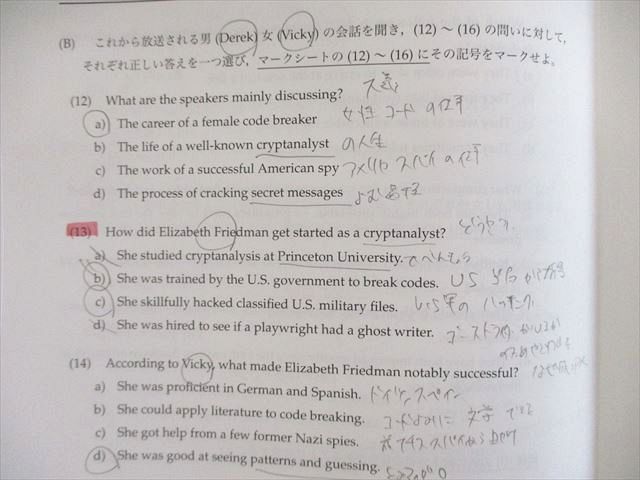 (B) これから放送される男 (Derek) 女 (Vicky) の会話を聞き, (12) ～ (16) の問いに対して,
それぞれ正しい答えを一つ選び, マークシートの (12) ～ (16) にその記号をマークせよ。
(12) What are the speakers mainly discussing?
a) The career of a female code breaker 女性 コード の仕事
b) The life of a well-known cryptanalyst の人生
c) The work of a successful American spy アメリカ スパイ の仕事
d) The process of cracking secret messages
(13) How did Elizabeth Friedman get started as a cryptanalyst?
a) She studied cryptanalysis at Princeton University.
b) She was trained by the U.S. government to break codes. US
c) She skillfully hacked classified U.S. military files.
d) She was hired to see if a playwright had a ghost writer.
(14) According to Vicky, what made Elizabeth Friedman notably successful?
a) She was proficient in German and Spanish. ドイツ, スペイン
b) She could apply literature to code breaking.
c) She got help from a few former Nazi spies.
d) She was good at seeing patterns and guessing.